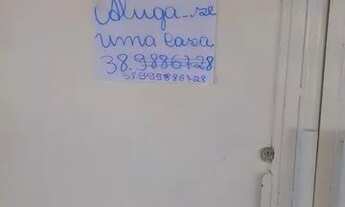 Aluga-se
uma casa
38.9886728
38.999886728